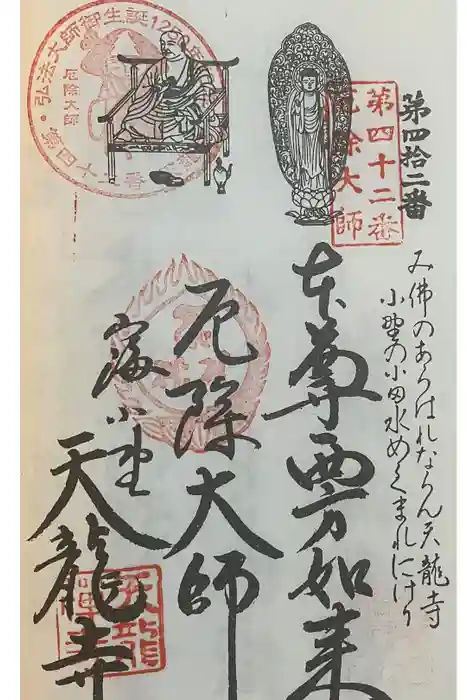 第四拾二番
み佛のあらはれならん天龍寺
小野の小田水めぐまれにけり
第四十二番
厄除大師
本尊西方如来
厄除大師
天龍寺
弘法大師御生誕12
厄除大師
第四十二番